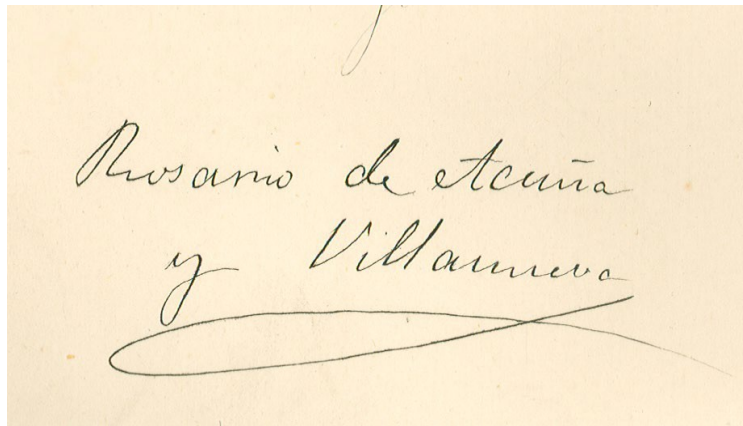 Rosario de Acuña
y Villanueva